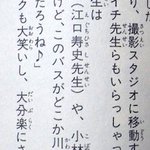 り、撮影スタジオに移動す
イチ先生らもいらっしゃっ
生は
（江口寿史先生）や、小林
けど、このバスがどこか川
だろうね♪」
クも大笑いし、大分楽にさ